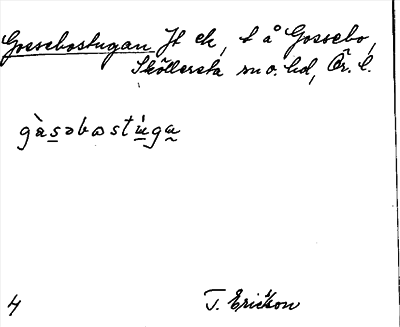 Gossebostugan Jt ek, t å Gossebo,
Sköllersta sn o. hd, Ör. l.
gàsəbωstùga
4
T. Ericson